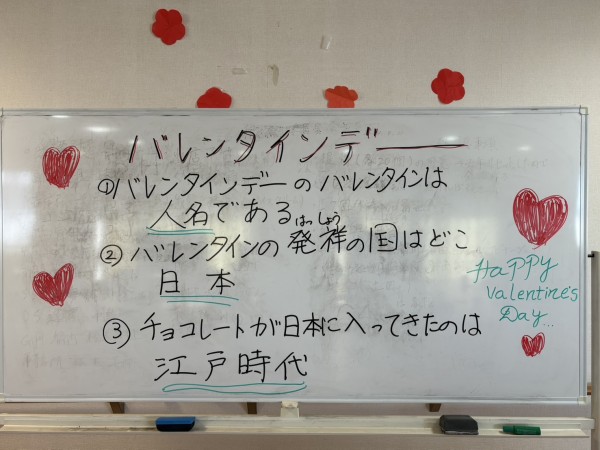 バレンタインデー
①バレンタインデーのバレンタインは
人名である
はっしょう
②バレンタインの発祥の国はどこ
日本
③チョコレートが日本に入ってきたのは
江戸時代
HaPPy
Valentine's
Day...